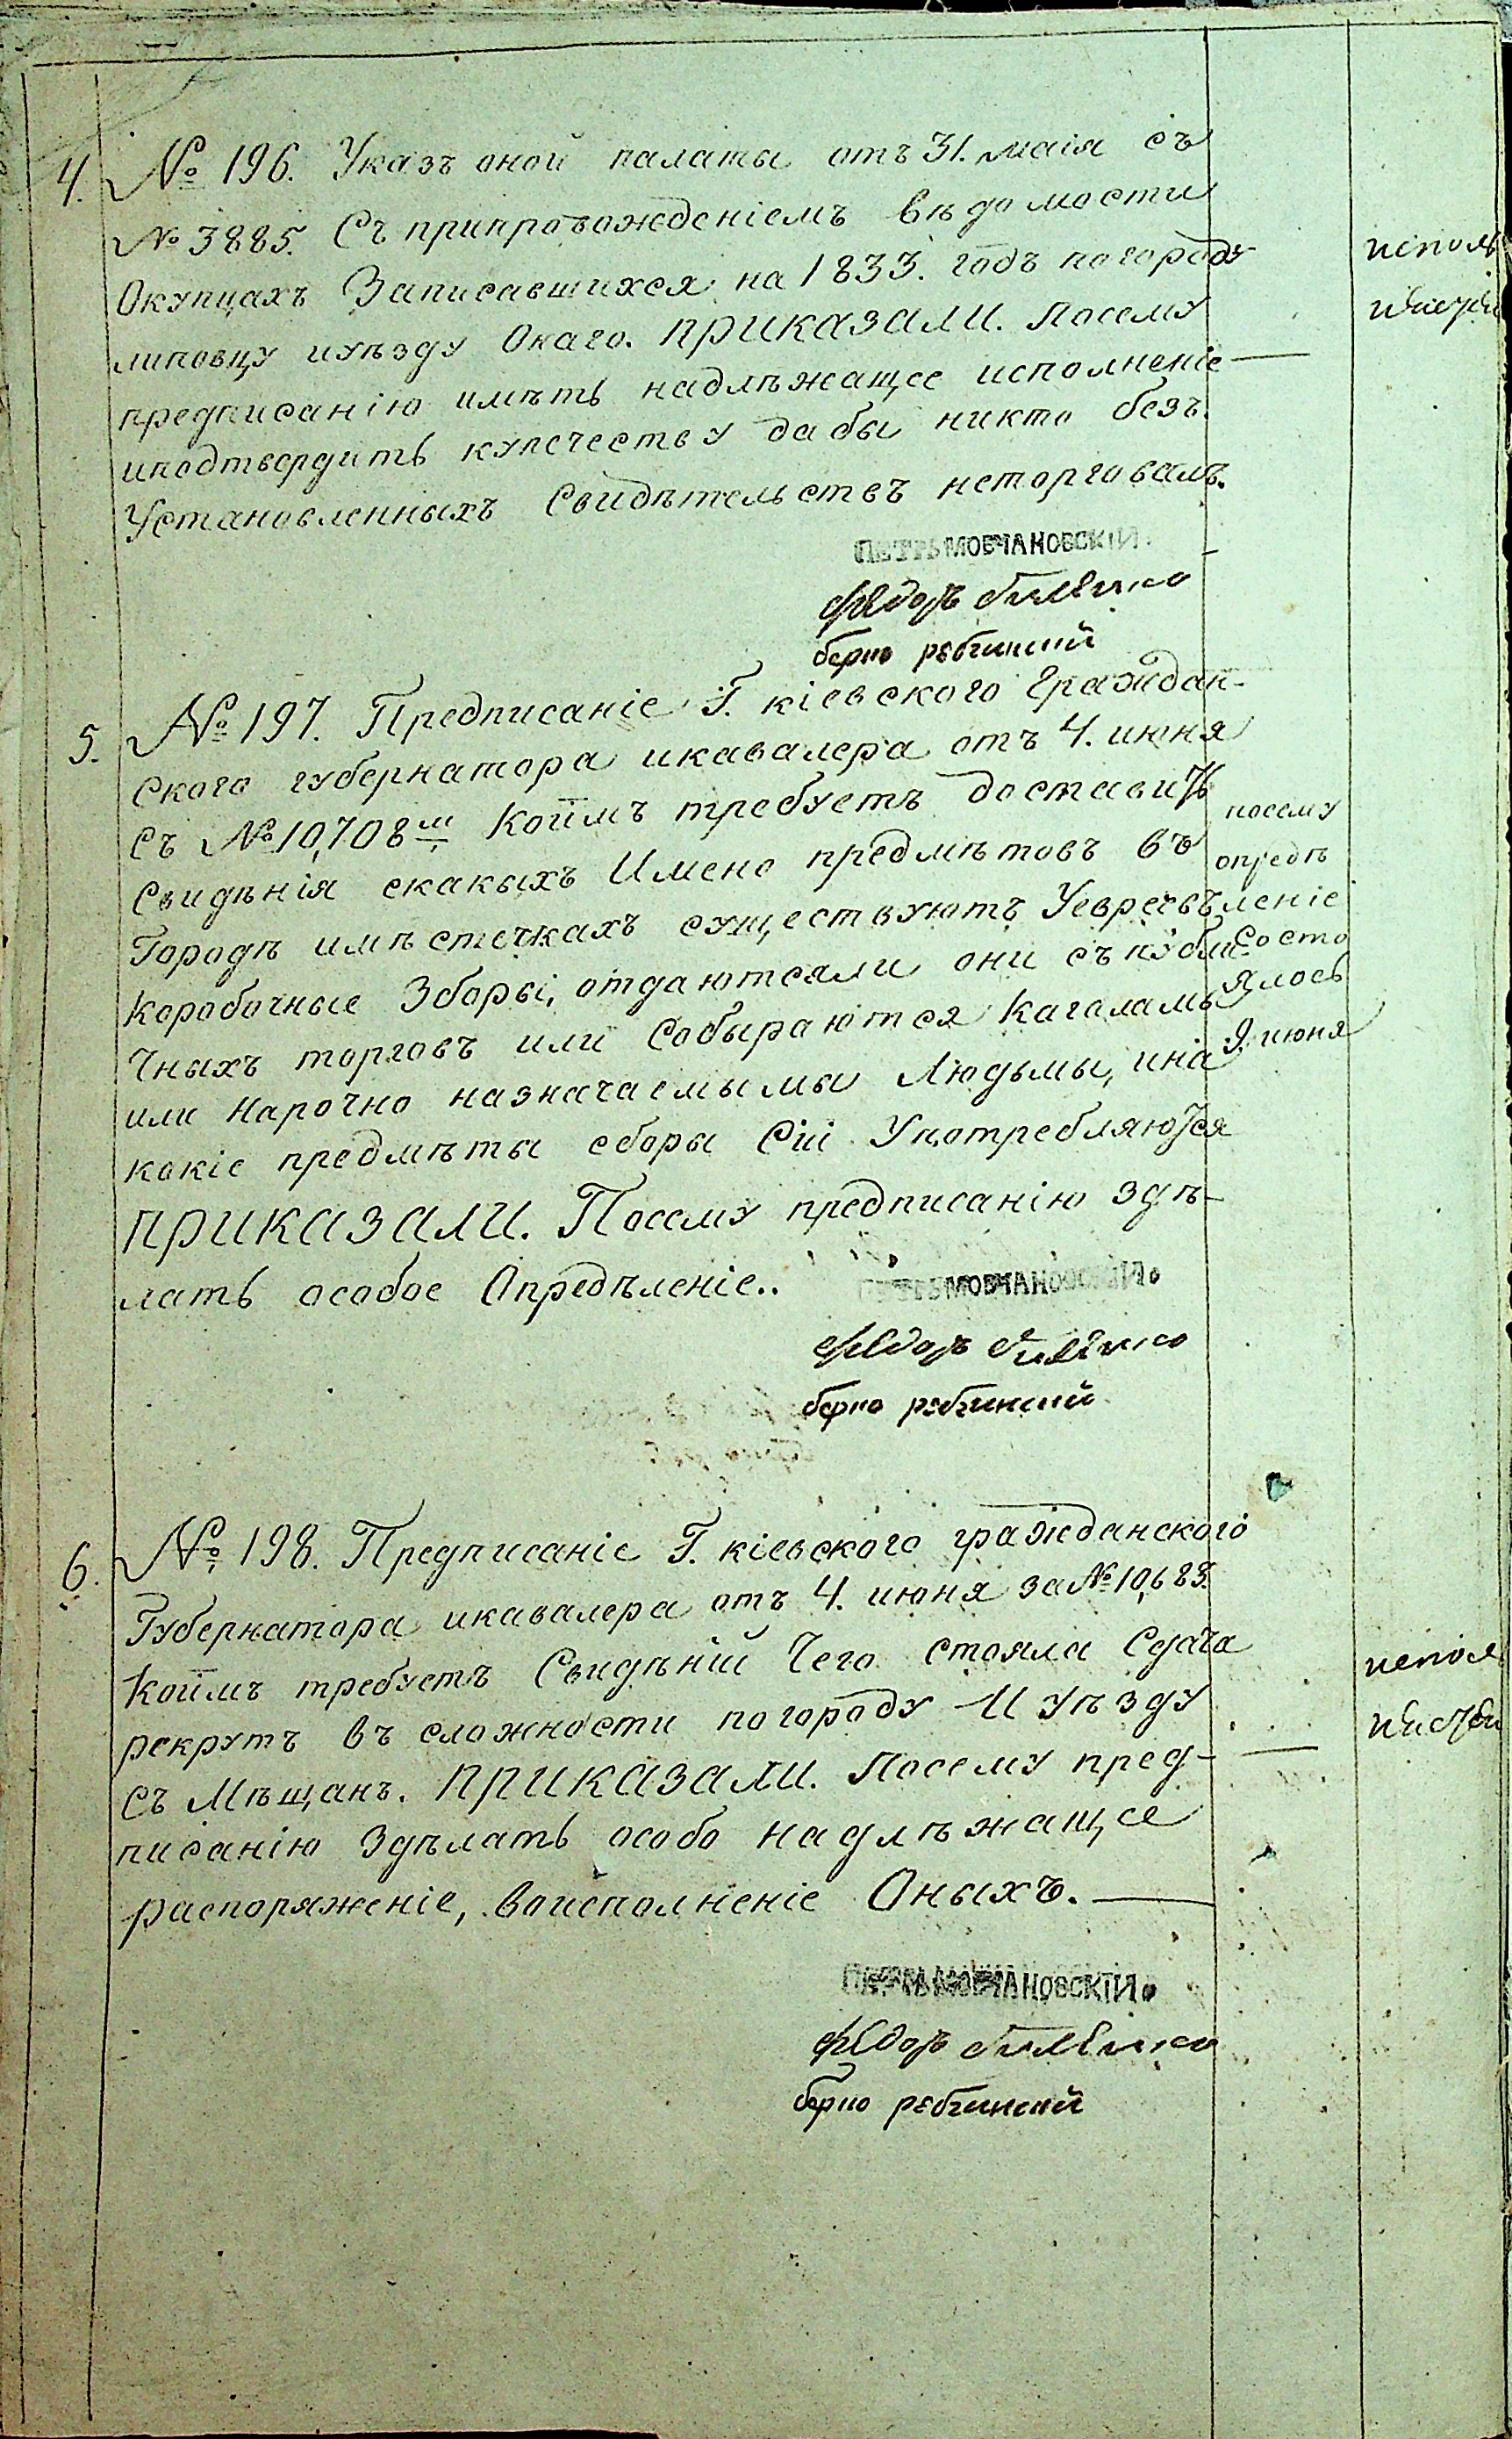 4. № 196. Указъ оной палаты отъ 31. маія съ
№ 3885. Съ припровожденіемъ вѣдомости
Окупцахъ Записавшихся на 1833. годъ погороду
липовцу иуѣзду Онаго. ПРИКАЗАЛИ. Посему
предписанію имѣть надлѣжащее исполненіе
иподтвердить купечеству дабы никто безъ
Установленныхъ Свидѣтельствъ неторговалъ.
ПЕТРЪ МОВЧАНОВСКІЙ.
Федоръ
берко
5. № 197. Предписаніе Г. кіевского Граждан-
ского губернатора икавалера отъ 4. июня
съ № 10,708м Коимъ требуетъ доставить
Свидѣнія скакыхъ Имено предмѣтовъ въ
Городѣ имѣстечкахъ существуютъ Уевреевъ
Коробочные Зборы, отдаютсяли они съ публи-
Чныхъ торговъ или Собыраются Кагаламы
или нарочно назначаемымы Людьмы, ина
какіе предмѣты сборы Сіи Употребляются
ПРИКАЗАЛИ. Посему предписанію здѣ-
лать особое Опредѣленіе..
посему
опредѣ
леніе
Состо
ялось
9. июня
ПЕТРЪ МОВЧАНОВСКІЙ.
Федоръ
берко
6. № 198. Предписаніе Г. кіевского гражданского
Губернатора икавалера отъ 4. июня за № 10,683.
Коимъ требуетъ Свидѣній Чего стояла Сдача
рекрутъ въ сложности погороду И уѣзду
съ Мѣщанъ. ПРИКАЗАЛИ. Посему пред-
писанію Здѣлать особо надлѣжащее
распоряженіе, воисполненіе Оныхъ.
ПЕТРЪ МОВЧАНОВСКІЙ.
Федоръ
берко